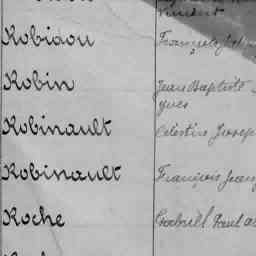 Vincent
Robidou François
Robin Jean Baptiste
Yves
Robinault Celestin Joseph
Robinault François Jean
Roche Gabriel Paul